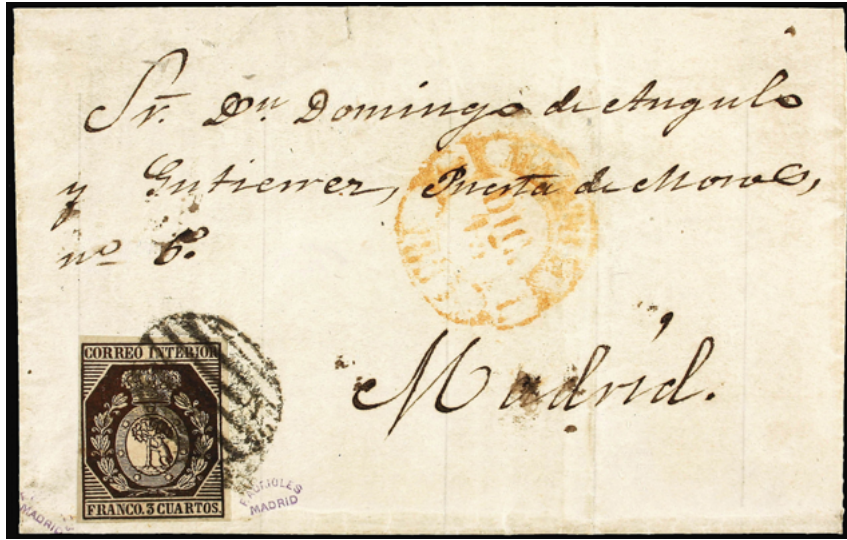 Sr. Dn. Domingo de Angulo
y Gutierrez, Puerta de Moros,
nº 6º
Madrid.
DIC
CORREO INTERIOR
FRANCO. 3 CUARTOS.
MADRID
MADRID